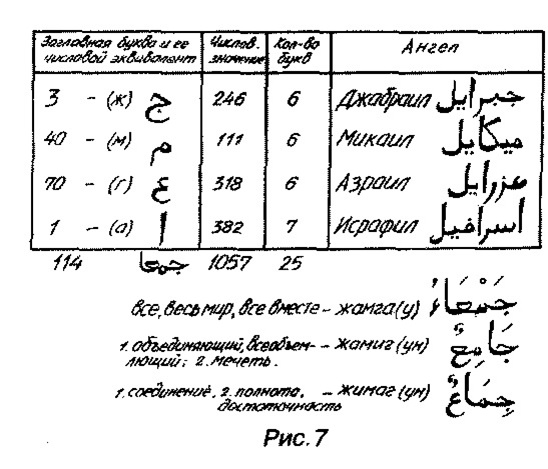 Заглавная буква и ее числовой эквивалент Числов. значение Кол-во букв Ангел
3 – (ж) ج 246 6 Джабраил جبرايل
40 – (м) م 111 6 Микаил ميكايل
70 – (г) ع 318 6 Азраил عزرايل
1 – (а) ا 382 7 Исрафил اسرافيل
114 جمعا 1057 25
все, весь мир, все вместе – жамга(у) جَمْعَاءُ
1. объединяющий, всеобъем- – жамиг (ун) جَامِعٌ
лющий; 2. мечеть.
1. соединение, 2. полнота, – жимаг (ун) جِمَاعٌ
достаточность
Рис. 7